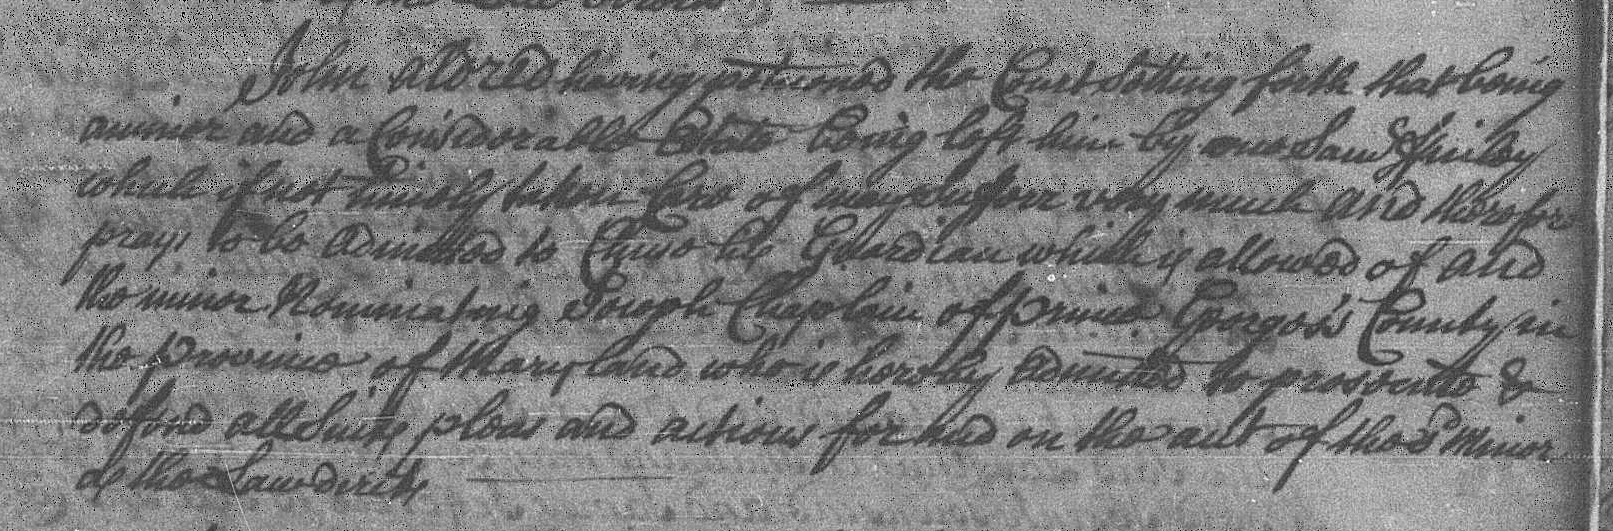 of the
John Aldred having petitioned the Court Setting forth that being
a minor and a Considerable Estate being left him by one Saml Finley
which if not timely taken Care of may Suffer very much and therefore
prays to be Admitted to Chuse his Guardian which is allowed of and
the minor Nominating Joseph Chaplain of Prince George's County in
the province of Maryland who is hereby Admitted to prosecute &
defend all Suits pleas and actions for and on the act of the sd Minor
as the Law directs